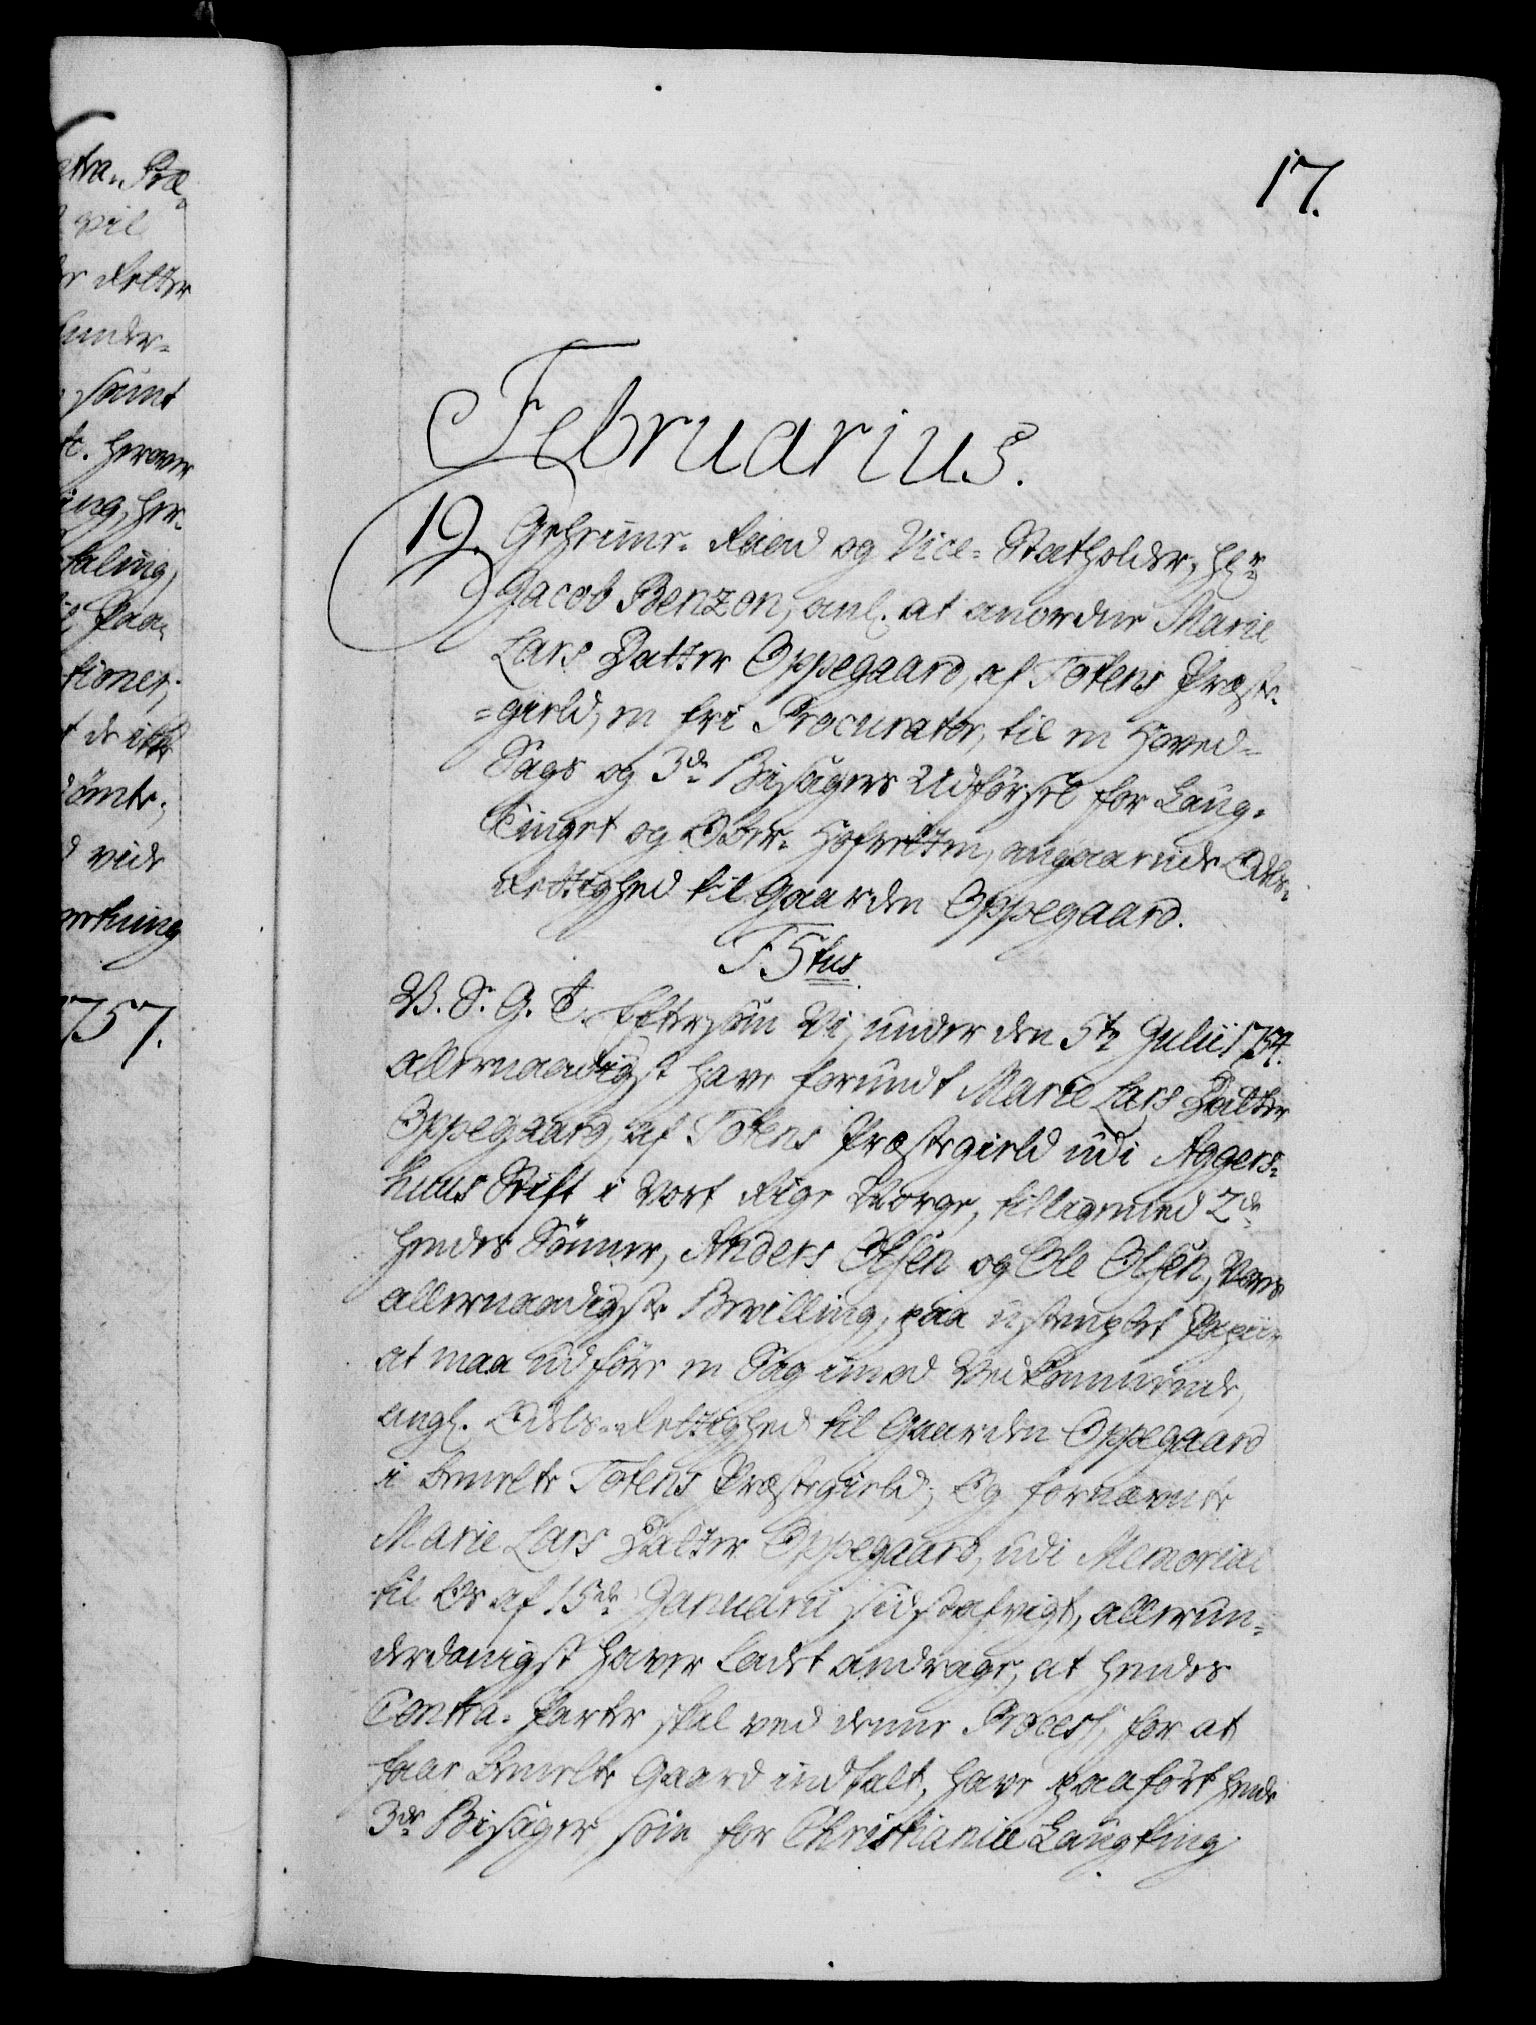 17.
Februarius.
19. Geheime-Raad og Vice-Statholder, Hr.
Jacob Benzon, anl. at anordne Marie
Lars Datter Oppegaard, af Totens Præste-
=gield, en frie Procurator, til en Hoved-
Sags og 3de Bisagers Udförsel for Laug-
Tinget og Ober-Hofretten, angaaende Odels-
Rettighed til Gaarden Oppegaard.
F5tus.
V. S. G. T. Eftersom Vi, under den 5te Julii 1754.
allernaadigst have forundt Marie Lars Datter
Oppegaard, af Totens Præstegield udi Aggers-
huus Stift i Vort Rige Norge, tilligemed 2de
hendes Sönner, Anders Olsen og Ole Olsen, Vores
allernaadigste Bevilling, paa ustemplet Papiir
at maa udföre en Sag imod Vedkommende,
angl. Odels-Rettighed til Gaarden Oppegaard
i bemelte Totens Præstegield; Og fornævnte
Marie Lars Datter Oppegaard, udi Memorial
til Os af 15de Januarii sidstafvigt, allerun-
derdanigst haver ladet andrage, at hendes
Contra-Parter skal ved denne Process, for at
faae bemelte Gaard indtalt, have paafört hende
3de Bisager, som for Christianiæ Laugting
ntra-Præ
vil
Retter
under-
samt
herover
ing, her-
taling,
Paa-
tioner,
t de ikke
dömte;
d vide
retning
1757.